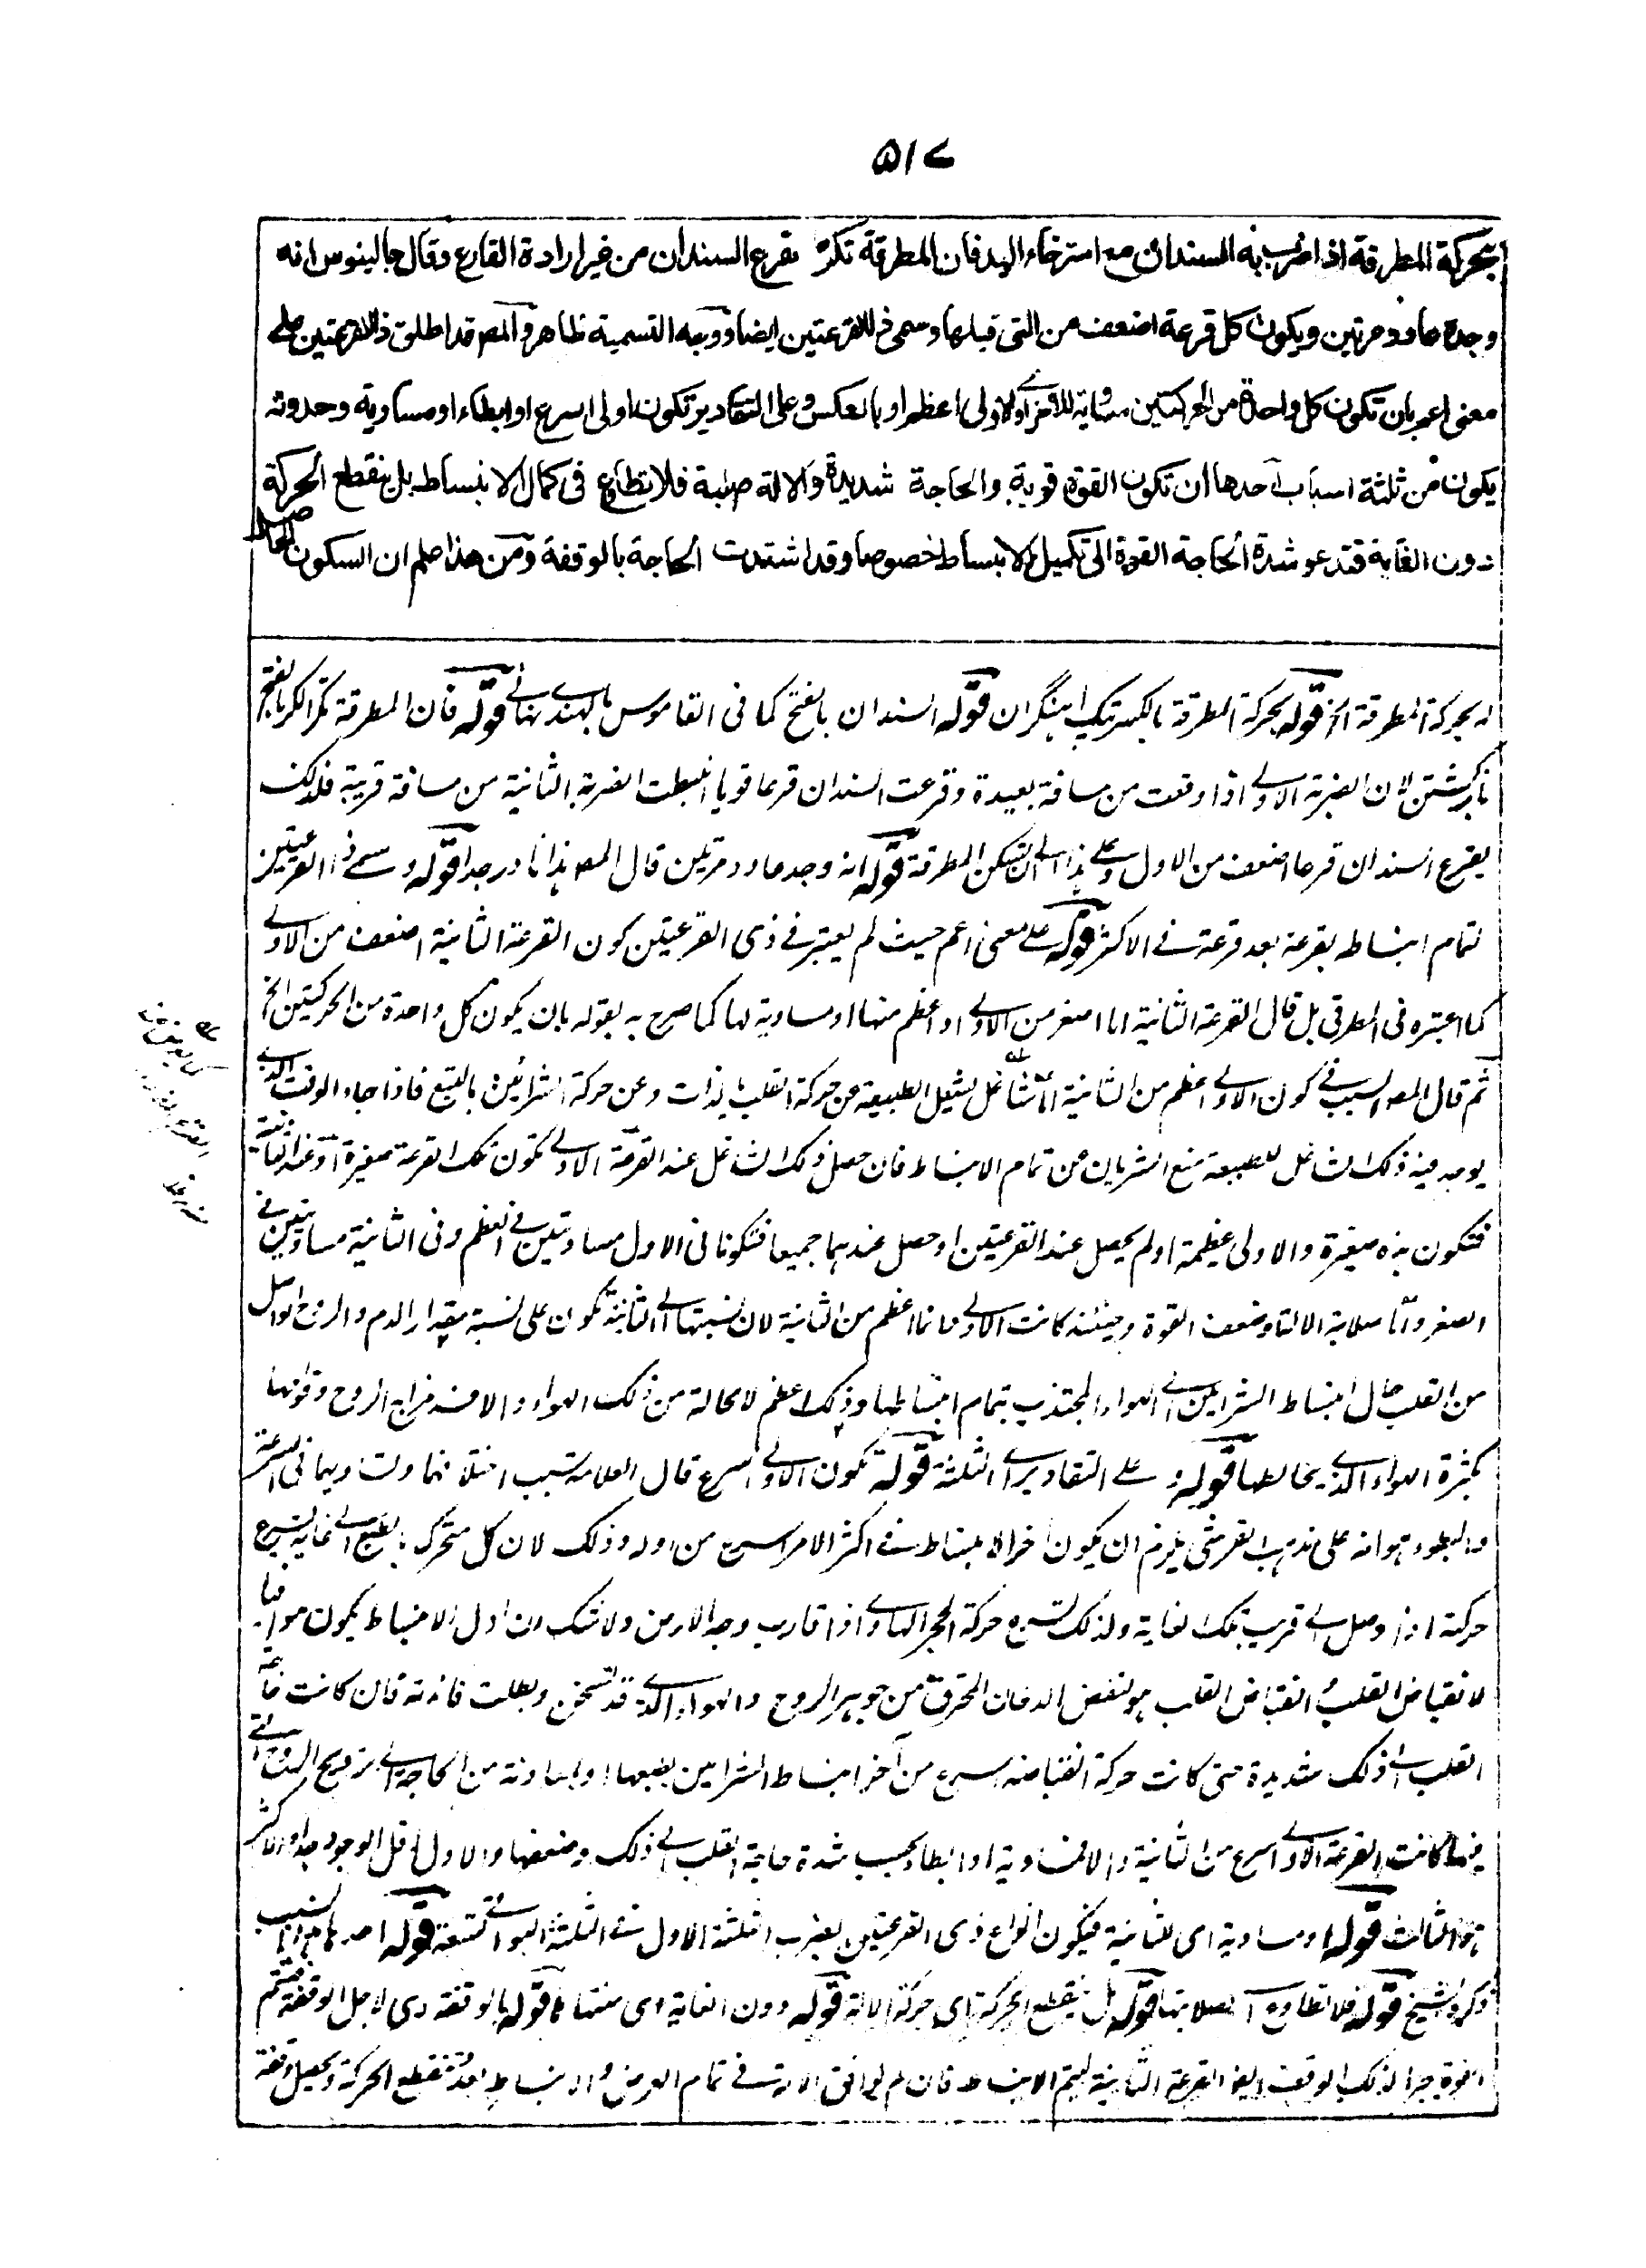 ۵۱۷
بحركة المطرقة اذا ضرب به السندان مع استرخاء اليد فان المطرقة تكرّ بقرع السندان من غير ارادة القارع وقال جالينوس انه
وجده عاود مرتين ويكون كل قرعة اضعف من التى قبلها وسمى ذا القرعتين ايضا ووجه التسمية ظاهر والمص قد اطلق ذا القرعتين على
معنى اعم بان تكون كل واحدة من الحركتين مساوية للاخرى او الاولى اعظم او بالعكس وعلى التقادير تكون اولى اسرع او ابطاء او مساوية وحدوثه
يكون من ثلثة اسباب احدها ان تكون القوة قوية والحاجة شديدة والالة صلبة فلا تطاوع فى كمال الانبساط بل ينقطع الحركة
دون الغاية فتدعو شدة الحاجة القوة الى تكميل الانبساط خصوصا وقد اشتدت الحاجة بالوقفة ومن هذا علم ان السكون
بحركة المطرقة الخ قوله بحركة المطرقة بالكسر قوله السندان بالفتح كما فى القاموس قوله فان المطرقة تكر الكر بالفتح
لان الضربة الاولى اذا وقعت من مسافة بعيدة وقرعت السندان قرعا قويا الضربة الثانية من مسافة قريبة فلذلك
يقرع السندان قرعا اضعف من الاول وعلى هذا الى ان تسكن المطرقة قوله انه وجد عاود مرتين قال المص هذا نادر جدا قوله وسمى ذا القرعتين
لتمام انبساطه بقرعة بعد قرعة فى الاكثر قوله على معنى اعم حيث لم يعتبر فى ذى القرعتين كون القرعة الثانية اضعف من الاولى
كما اعتبره فى المطرقى بل قال القرعة الثانية اما اصغر من الاولى او اعظم منها او مساوية لها كما صرح به بقوله بان يكون كل واحدة من الحركتين الخ
ثم قال المص السبب فى كون الاولى اعظم من الثانية اما شاغل يشغل الطبيعة عن حركة القلب بالذات وعن حركة الشرائين بالتبع فاذا جاء الوقت الذى
يوجد فيه ذلك الشاغل للطبيعة منع الشريان من تمام الانبساط فان حصل ذلك الشاغل عند القرعة الاولى تكون تلك القرعة صغيرة او عند الثانية
فتكون هذه صغيرة والاولى عظيمة او لم يحصل عند القرعتين او حصل عندهما جميعا فتكونا فى الاول مساويتين فى العظم وفى الثانية مساويتين فى
الصغر واما صلابة الالة او ضعف القوة وحينئذ كانت الاولى دائما اعظم من الثانية لان نسبتها الى الثانية تكون على نسبة مقدار الدم والروح الواصل
من القلب حال انبساط الشرايين الى الهواء المجتذب بتمام انبساطها وذلك اعظم لا محالة من ذلك الهواء والا فسد مزاج الروح وقوتها
بكثرة الهواء الذى يخالطها قوله وعلى التقادير اى الثلثة قوله تكون الاولى اسرع قال العلامة سبب اختلافهما وتساويهما فى السرعة
والبطوء هو انه على مذهب القرشى يلزم ان يكون اخر الانبساط فى اكثر الامر اسرع من اوله وذلك لان كل متحرك بالطبع الى غاية تسرع
حركته اذا وصل الى قريب تلك الغاية ولذلك تسرع حركة الحجر الهاوى اذا قارب وجه الارض ولا شك ان اول الانبساط يكون موافقا
لانقباض القلب وانقباض القلب هو لنفض الدخان المحترق من جوهر الروح والهواء الذى قد تسخن وبطلت فائدته فان كانت حاجة
القلب الى ذلك شديدة حتى كانت حركة انقباضه اسرع من آخر انبساط الشرايين بطبعها او لمعاونة من الحاجة الى ترويح الروح التى
فيها كانت القرعة الاولى اسرع من الثانية والا فمساوية او ابطا بحسب شدة حاجة القلب الى ذلك وضعفها والاول اقل الوجود جدا والاكثر
هو الثالث قوله او مساوية اى للثانية فيكون انواع ذى القرعتين بضرب الثلثة الاول فى الثلثة البواقى تسعة قوله احدها هذا السبب
ذكره الشيخ قوله فلا تطاوع اى لصلابتها قوله بل ينقطع الحركة اى حركة الالة قوله دون الغاية اى منتهاها قوله بالوقفة اى لاجل الوقفة
القوة جبرا لذلك الوقف ايضا القرعة الثانية ليتم الانبساط فان لم يوافق الالة فى تمام العرض والانبساط بعد تنقطع الحركة ويحصل وقفة